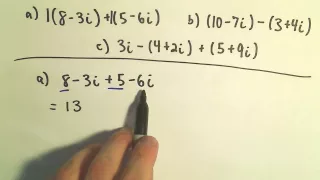 a) 1(8-3i)+1(5-6i) b) (10-7i)-(3+4i)
c) 3i-(4+2i)+(5+9i)
a) 8-3i+5-6i
= 13